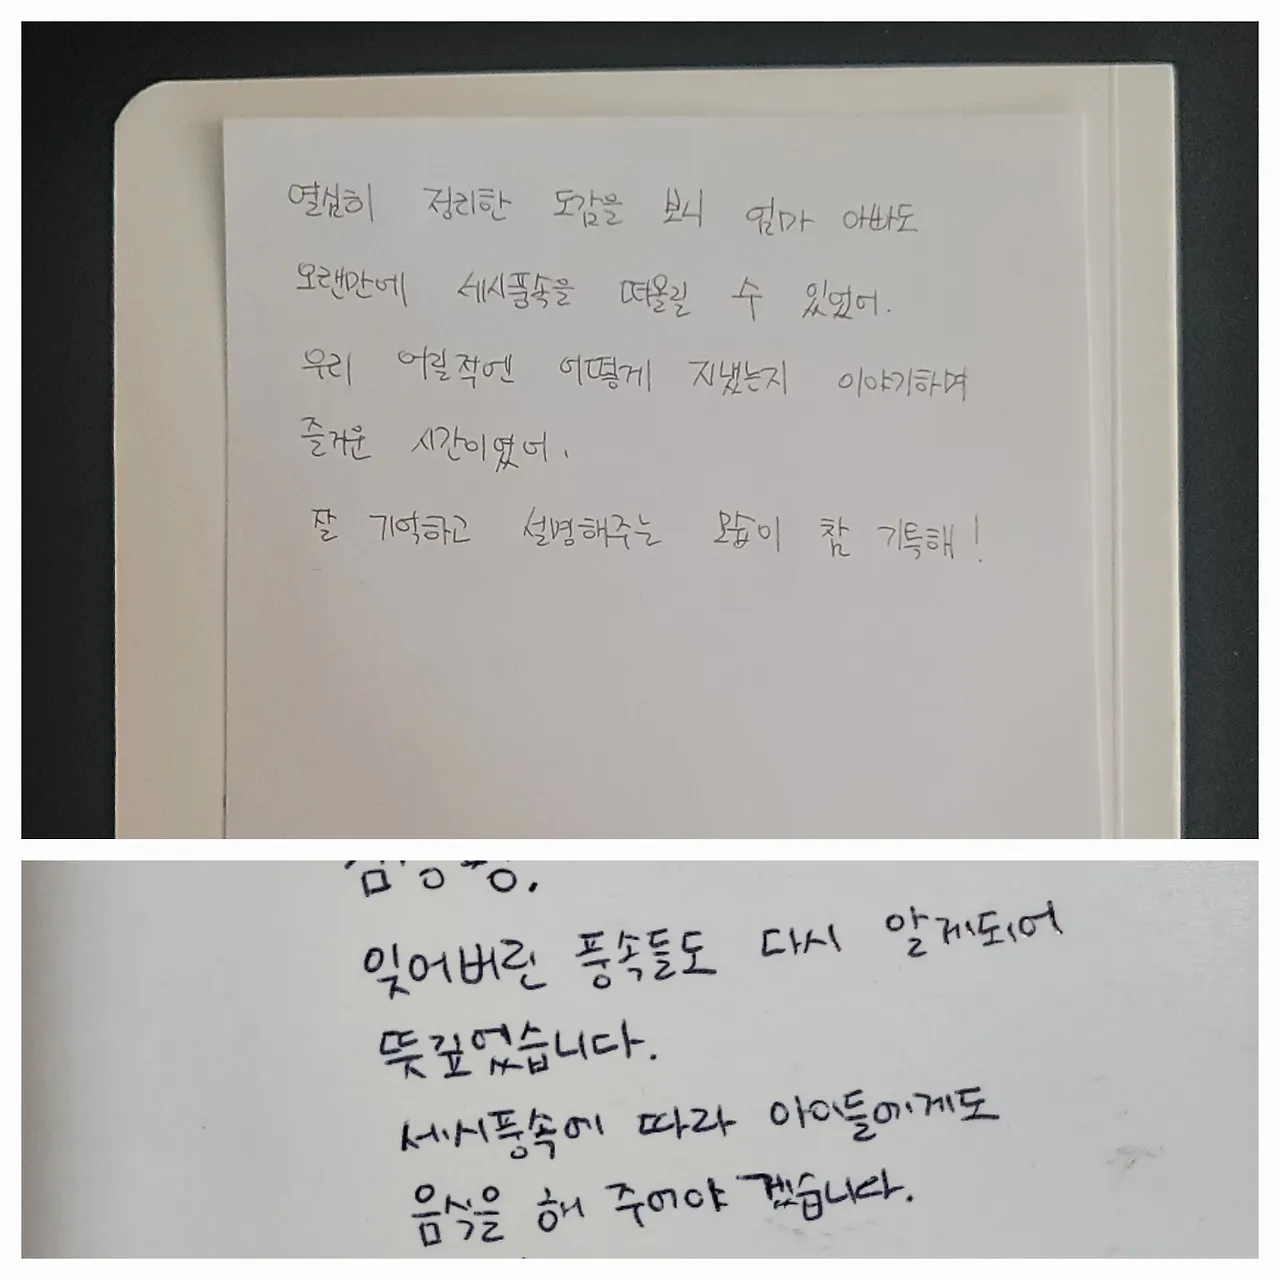 열심히 정리한 도감을 보니 엄마 아빠도
오랜만에 세시풍속을 떠올릴 수 있었어.
우리 어릴적엔 어떻게 지냈는지 이야기하며
즐거운 시간이였어.
잘 기억하고 설명해주는 모습이 참 기특해!
잊어버린 풍속들도 다시 알게되어
뜻깊었습니다.
세시풍속에 따라 아이들에게도
음식을 해 주어야 겠습니다.